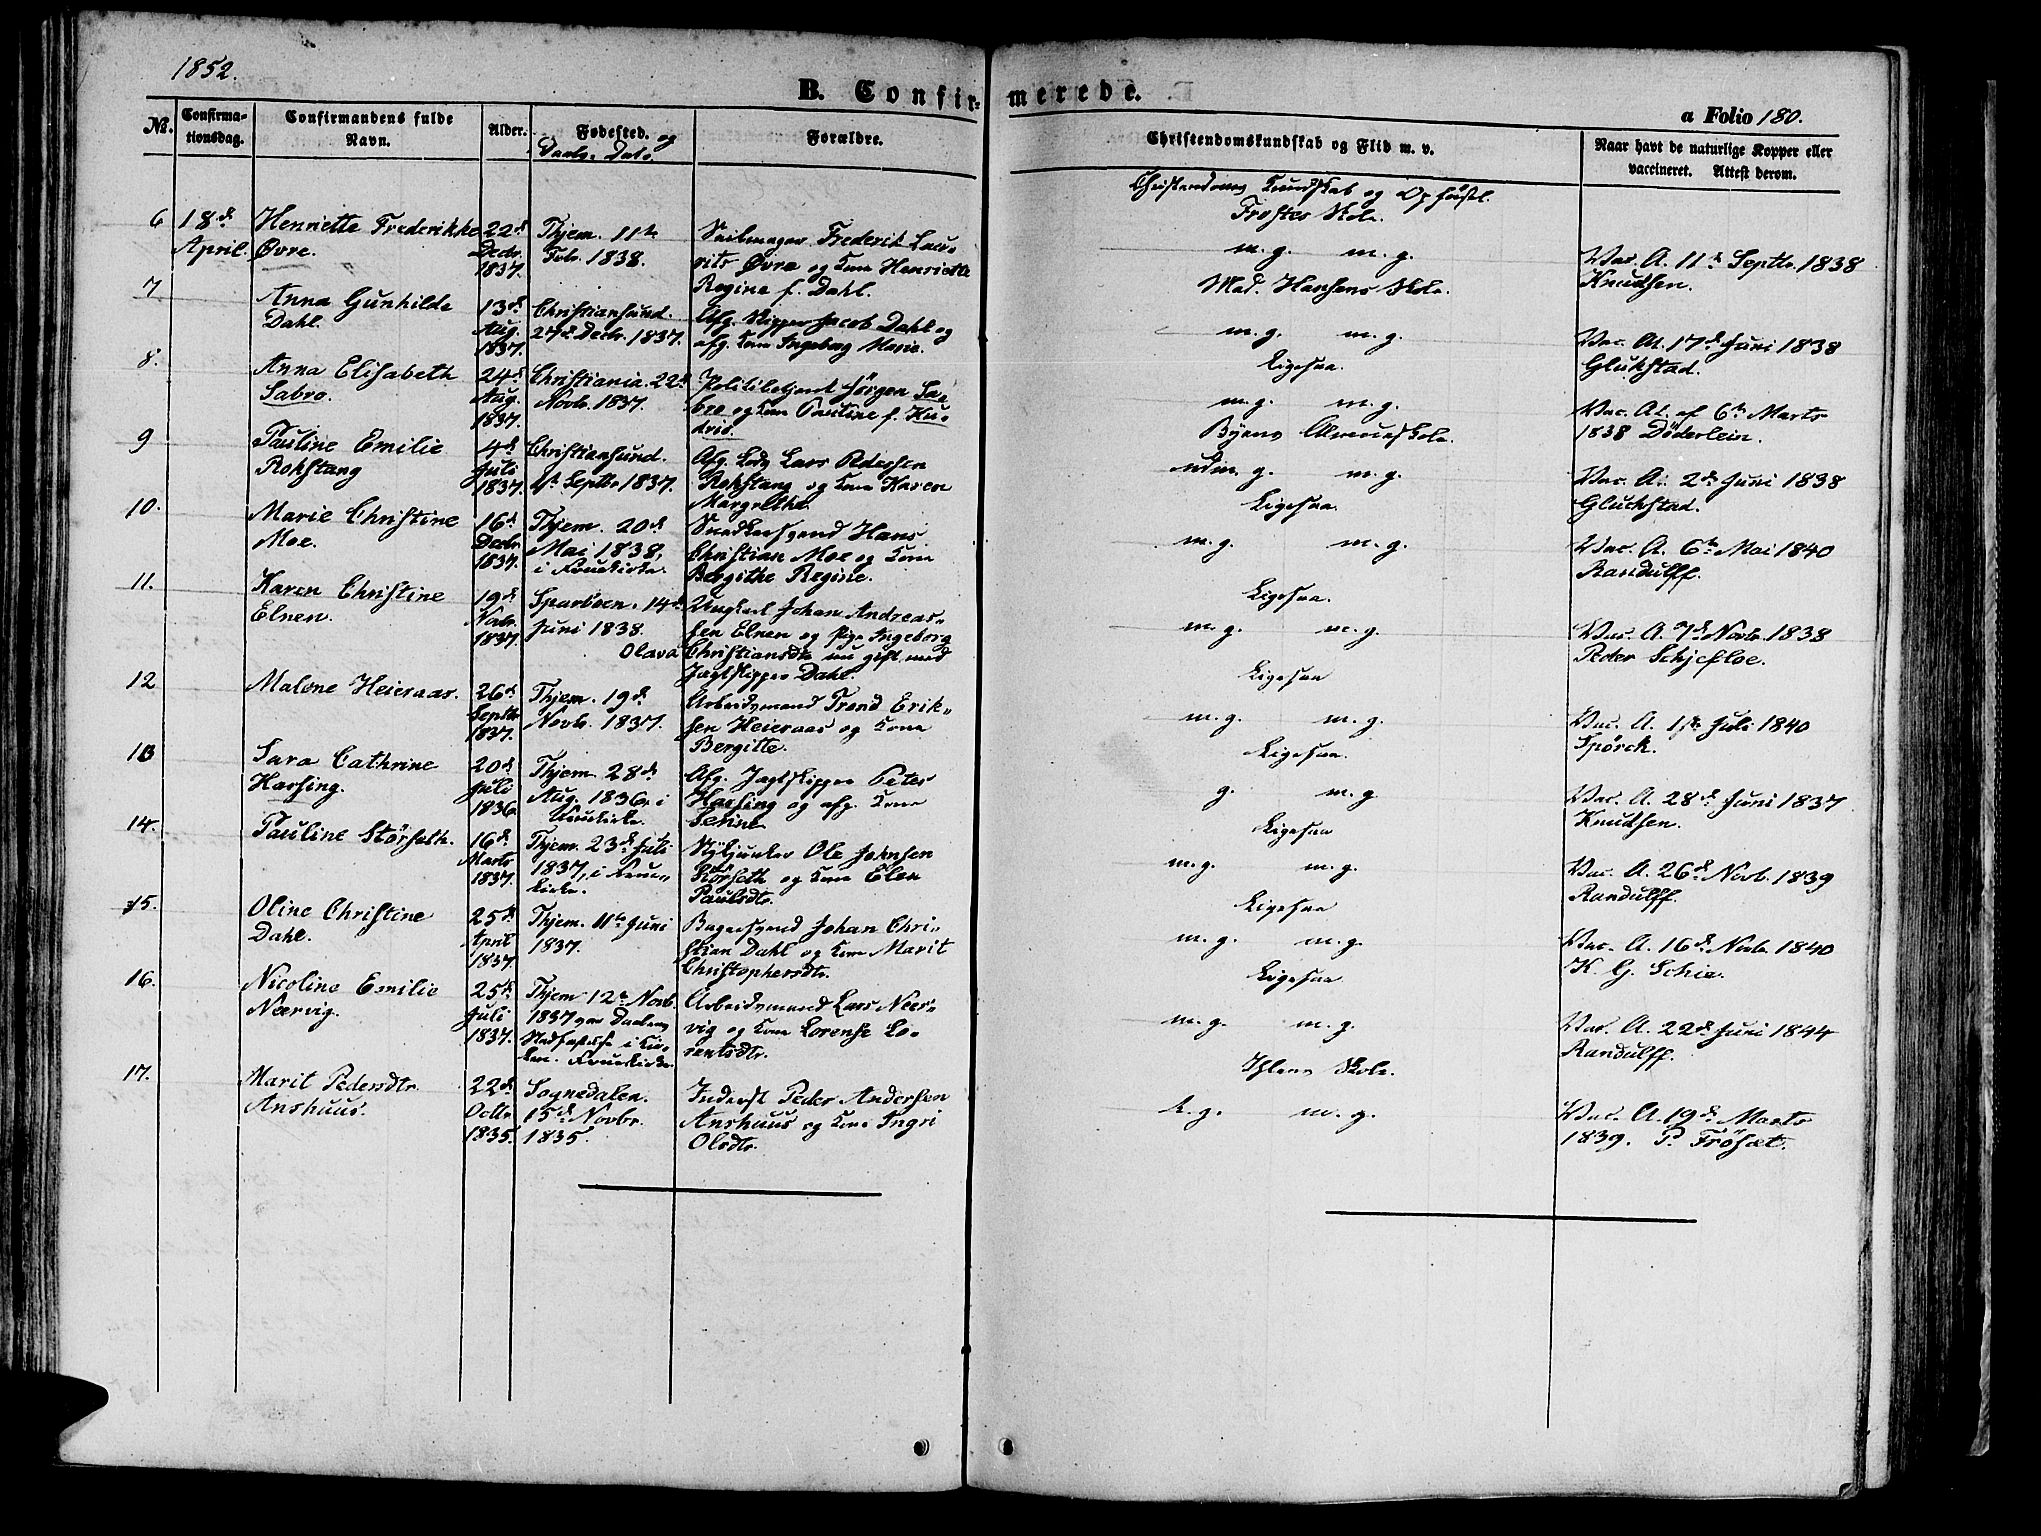 1852.
B. Confir-
merede.
a Folio 180.
No.
Confirma-
tionsdag.
Confirmandens fulde
Navn.
Alder.
Fødested. og
Daabs Dato
Forældre.
Christendomskundskab og Flid m. v.
Naar havt de naturlige Kopper eller
vaccineret. Attest derom.
Christendoms Kundskab og Opførsel.
Frostes Skole.
6
18de
April.
Henriette Frederikke
Øvre.
22de
Decbr.
1837.
Thjem. 11te
Febr. 1838.
Seilmager Frederik Lau-
rits Øvre og Kone Henriette
Regine f. Dahl.
m. g. m. g.
Vac. A. 11te Septbr. 1838
Knudsen.
Mad. Hansens Skole.
7
Anna Gunhilde
Dahl.
13de
Aug.
1837.
Christiansund.
27de Decbr. 1837.
Afg. Skipper Jacob Dahl og
afg. Kone Ingeborg Marie.
m. g. m. g.
Vac. At. 17de Juni 1838
Glukstad.
Ligesaa.
8.
Anna Elisabeth
Sabro.
24de
Aug.
1837.
Christiania. 22de
Novbr. 1837.
Politibetjent Jørgen Sa-
bro og Kone Pauline f.
m. g. m. g.
Vac. At. af 6te Marts
1838 Döderlein.
Byens Almueskole.
9
Pauline Emilie
Rokstang
4de
Juli
1837.
Christiansund.
Septbr 1837.
Afg. Lods Lars Pedersen
Rokstang og Kone Karen
Margrethe.
udm. g. m. g.
Vac. A. 2den Juni 1838
Gluckstad.
Ligesaa.
10.
Marie Christine
Moe.
16de
Decbr
1837.
Thjem. 20de
Mai 1838,
i Fruekirke.
Snedkersvend Hans
Christian Moe og Kone
Bergithe Regine.
m. g. m. g.
Vac. A. 6te Mai 1840
Randulff.
Ligesaa.
11.
Karen Christine
Elnen.
19de
Novbr.
1837.
Sparboen. 14de
Juni 1838.
Ungkarl Johan Andreas-
sen Elnen og Pige Ingeborg
Olava Christiansdtr nu gift med
Jagtskipper Dahl.
m. g. m. g.
Vac. A. 7de Novbr. 1838
Peder Schjefloe.
Ligesaa
12
Malene Heieraas.
26de
Septbr
1837.
Thjem. 19de
Novbr. 1837.
Arbeidsmand Trond Erik-
sen Heieraas og Kone
Bergitte.
m. g. m. g.
Vac. A. 1ste Juli 1840
Spørck.
Ligesaa.
13
Sara Cathrine
Harsing.
20de
Juli
1836
Thjem. 28de
Aug. 1836. i
Fruekirke.
Afg. Jagtskipper Peter
Harsing og afg. Kone
Serine
g. m. g
Vac. A. 28de Juni 1837
Knudsen.
Ligesaa
14.
Pauline Störseth.
16de
Marts
1837.
Thjem. 23de Juli
1837, i Frue-
kirke.
Stykjunker Ole Johnsen
Störseth og Kone Elen
Paulsdtr.
m. g. m. g.
Vac. A. 26de Novb. 1839
Randulff.
Ligesaa
15.
Oline Christine
Dahl.
25de
April
1837.
Thjem. 11te Juni
1837.
Bagersvend Johan Chri-
stian Dahl og Kone Marit
Christophersdtr.
m. g. m. g.
Vac. A. 16de Novbr. 1840
K. G. Schie.
Ligesaa
16.
Nicoline Emilie
Neervig.
25de
Juli
1837.
Thjem 12te Novb.
1837 var Daabens
Stadfæstelse i Kir-
ken. Fruekirke.
Arbeidsmand Lars Neer-
vig og Kone Lorense Lo-
rentsdtr.
m. g. m. g.
Vac. A. 22de Juni 1844
Randulff.
Ihlens Skole.
17.
Marit Pedersdtr.
Anshuus.
22de
Octbr
1835.
Sognedalen.
15de Novbr.
1835.
Inderst Peder Andersen
Anshuus og Kone Ingri
Olsdtr.
t. g. m. g.
Vac. A. 19de Marts
1839. P. Fröset.